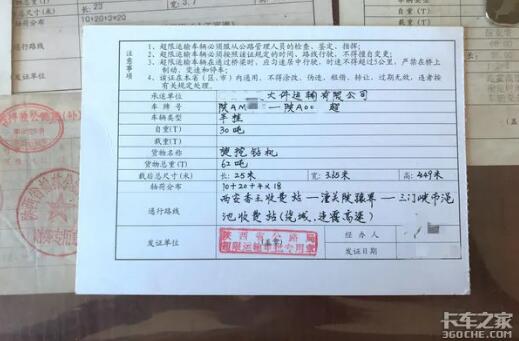 长: 23
10+20+3*20
注意事项
1、超限运输车辆必须服从公路管理人员的检查、鉴定、指挥;
2、超限运输车辆必须按照该证规定的时间、路线行驶,不得擅自变更;
3、超限运输车辆通过桥梁时,应匀速居中行驶,时速不得超过5公里,严禁在桥上制动、变速和停车;
4、该证在本省(区、市)内通用,不得涂改、伪造、租借、转让,过期无效,违者按有关规定处理。
承运单位 大件运输有限公司
车牌号 陕AM 陕A00 超
车辆类型 半挂
自重(T) 30吨
载重(T)
货物名称 旋挖钻机
货物总重(T) 62吨
载后总尺寸(米) 长: 25米 宽: 3.65米 高: 4.49米
轴荷分布 10+20+4×18
通行路线 西安香王收费站——潼关陕豫界——三门峡市渑
池收费站(绕城、连霍高速)
发证单位 (盖章) 经办人
陕西省公路局
超限运输审批专用章
发证日期
卡车之家
360che.com